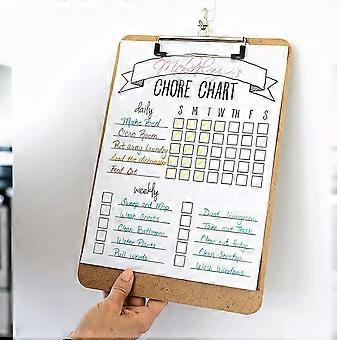 CHORE CHART
daily
S M T W TH F S
Make Bed
Clean Room
Put away laundry
load the dishwasher
Feed Cat
weekly
Sweep and Mop
Wash Sheets
Clean Bathroom
Water Plants
Pull weeds
Dust livingroom
Take out Trash
Clean out fridge
Clean
Wash Windows